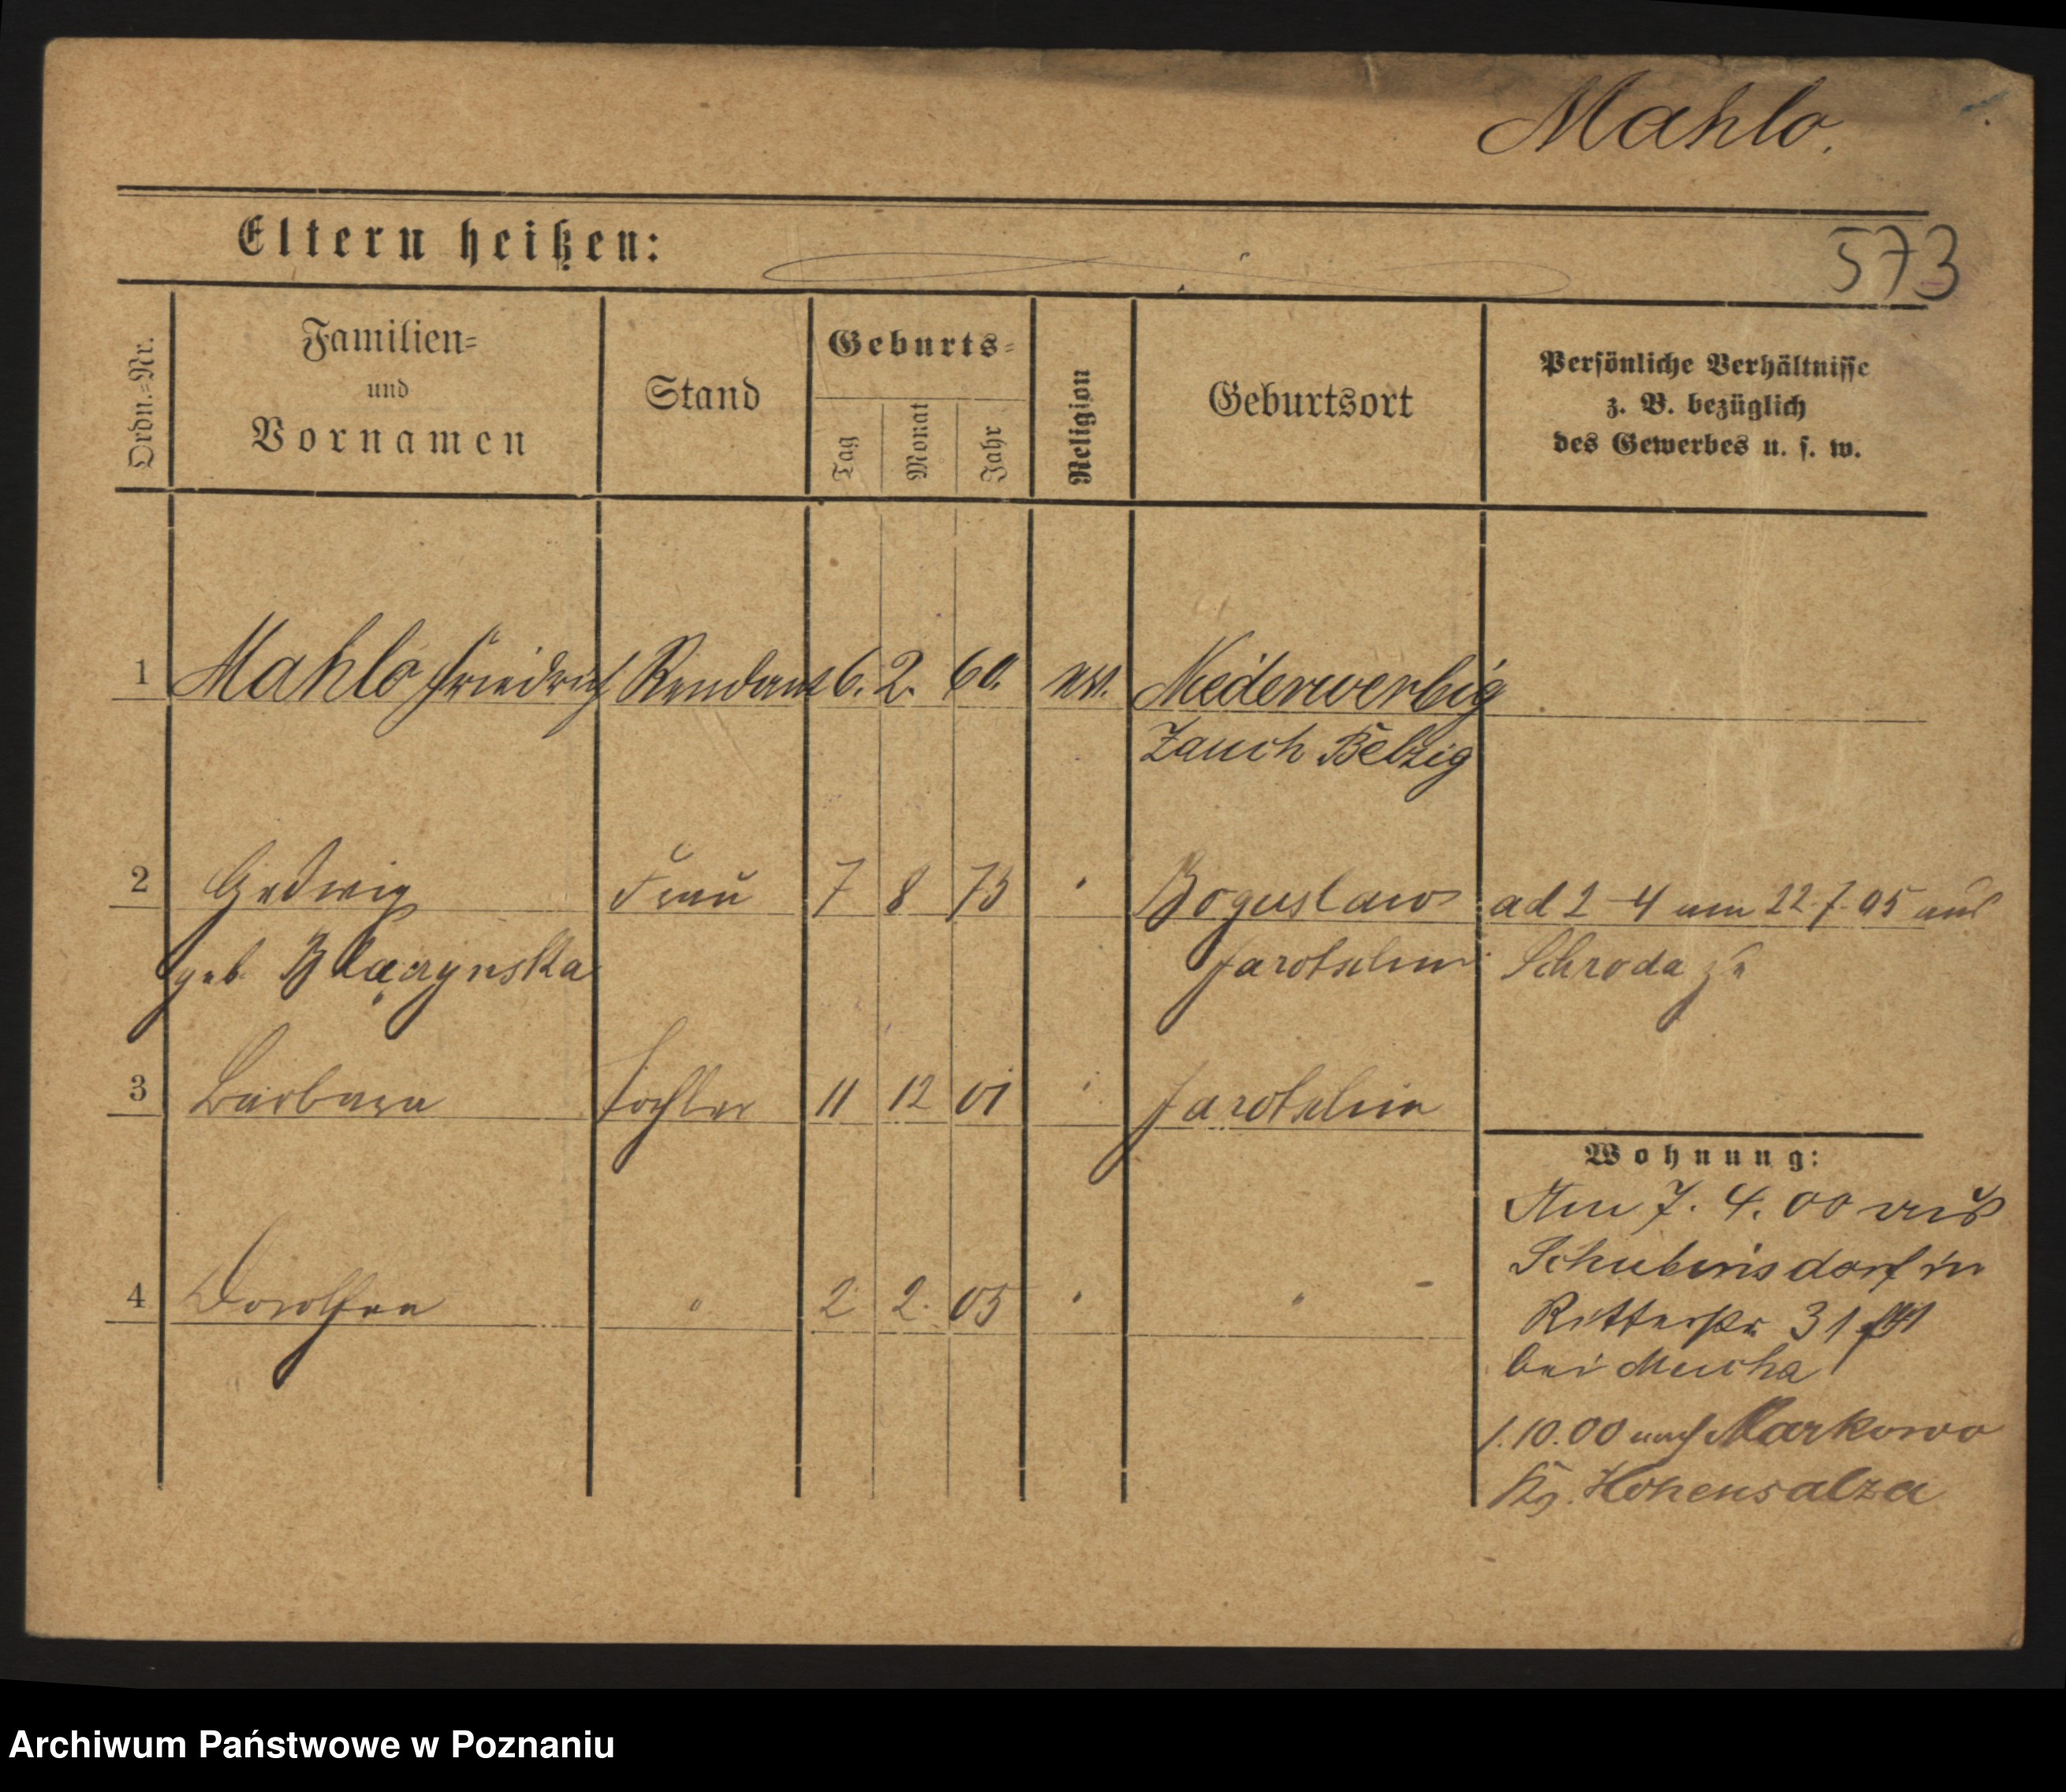 Mahlo.
Eltern heißen:
573
Ordn.-Nr.
Familien-
und
Vornamen
Stand
Geburts-
Tag
Monat
Jahr
Religion
Geburtsort
Persönliche Verhältnisse
z. B. bezüglich
des Gewerbes u. s. w.
1 Mahlo Friedrich Rendant 6. 2. 60. Niederwerbig
Zauch Belzig
2 Hedwig Frau 7 8 75 " Boguslaw ad 2-4 am 22.7.05 aus
geb. Jarotschin Schroda zu
3 Barbara Tochter 11 12 01 " Jarotschin
Wohnung:
Am 7. 4. 00 aus
in
4 Dorothea " 2 2. 05 " "
Ritterstr 31
bei Mucha
1.10.00 nach Markowo
Kr. Hohensalza
Archiwum Państwowe w Poznaniu